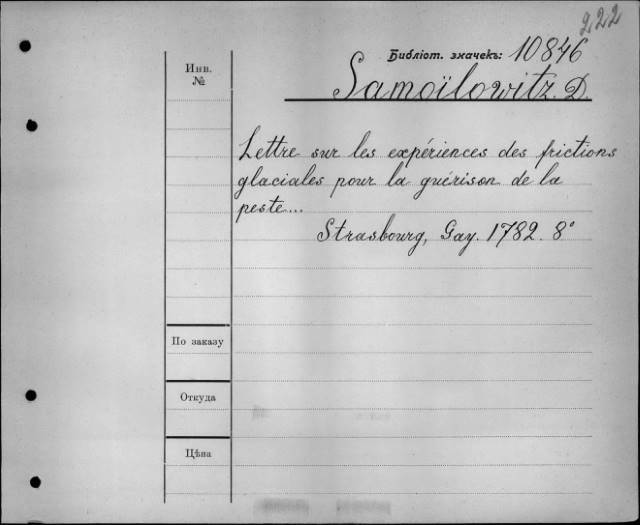 222
Библіот. значекъ: 10846
Инв.
№
Samoïlowitz. D.
Lettre sur les expériences des frictions
glaciales pour la guérison de la
peste...
Strasbourg, Gay. 1782. 8°
По заказу
Откуда
Цѣна